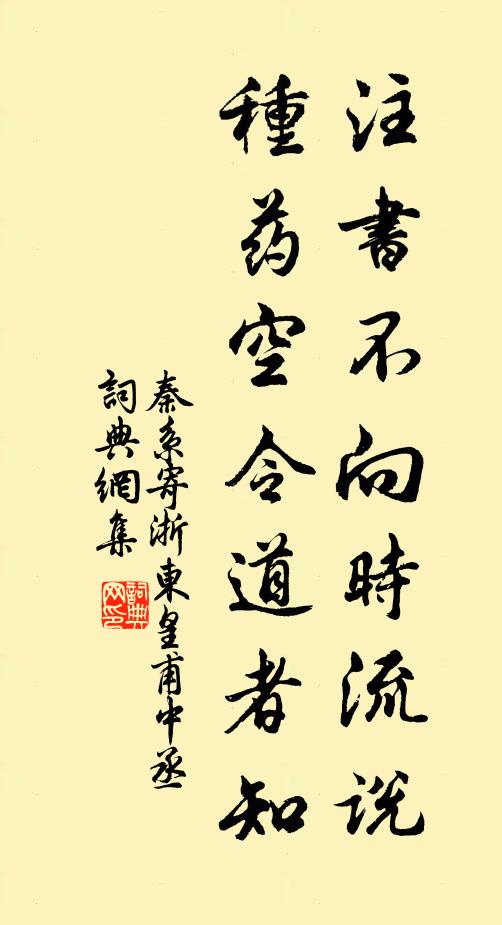 注書不向時流説
種药空令道者知
秦系寄浙東皇甫中丞
詞典網集
詞典
网印